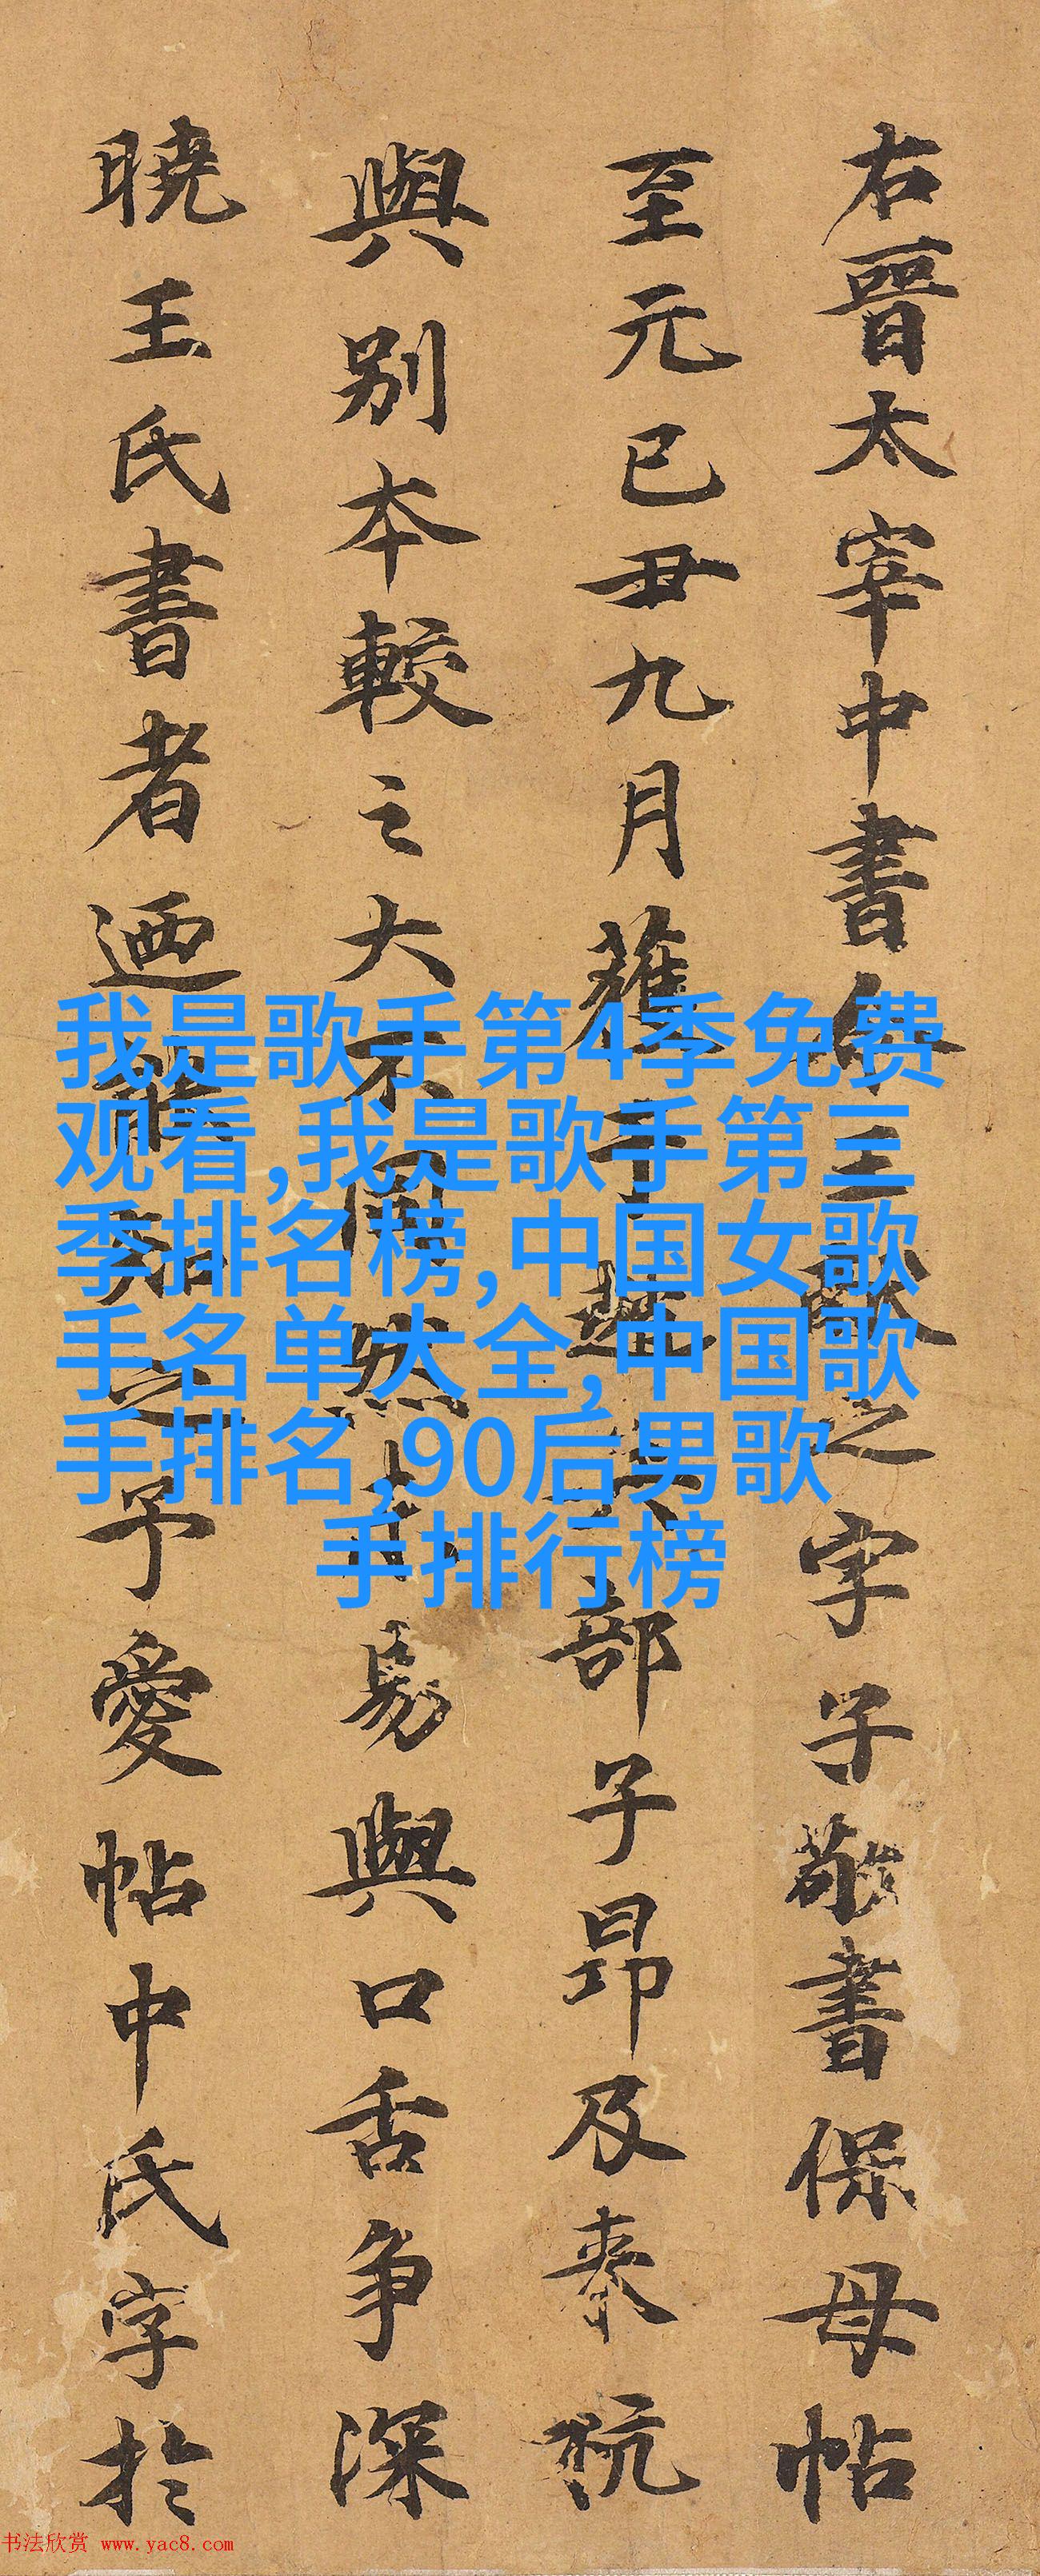 右晉太宰中書令王獻之字子敬書保母帖
至元已丑九月獲于越兵部子昂及來杭
與别本較之大不同然未易與口舌争深
曉王氏書者迺能知之予愛帖中氏字於
我是歌手第4季免费
观看,我是歌手第三
季排名榜,中国女歌
手名单大全,中国歌
手排名,90后男歌
手排行榜
书法欣赏 www.yac8.com